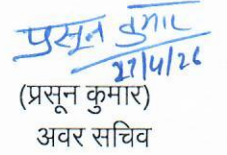 प्रसून कुमार
27/4/26
(प्रसून कुमार)
अवर सचिव